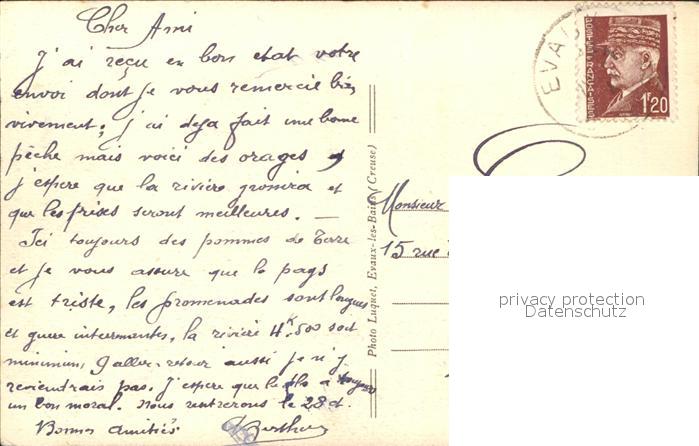 Cher Ami
J'ai reçu en bon etat votre
envoi dont je vous remercie bien
vivement; j'ai deja fait une bonne
pêche mais voici des orages et
j'espere que la rivière grossira et
que les prises seront meilleures. —
Ici toujours des pommes de terre
et je vous assure que le pays
est triste, les promenades sont longues
et guere interessantes, la rivière 4K,500 soit
minimum, 9 aller-retour aussi je n'y
reviendrais pas. J'espere que le a toujours
un bon moral. Nous rentrerons le 28 ct.
Bonnes amitiés
Berthe
Photo Luquet, Evaux-les-Bains (Creuse)
EVAUX
POSTES FRANÇAISES
1F20
Monsieur
15 rue
privacy protection
Datenschutz